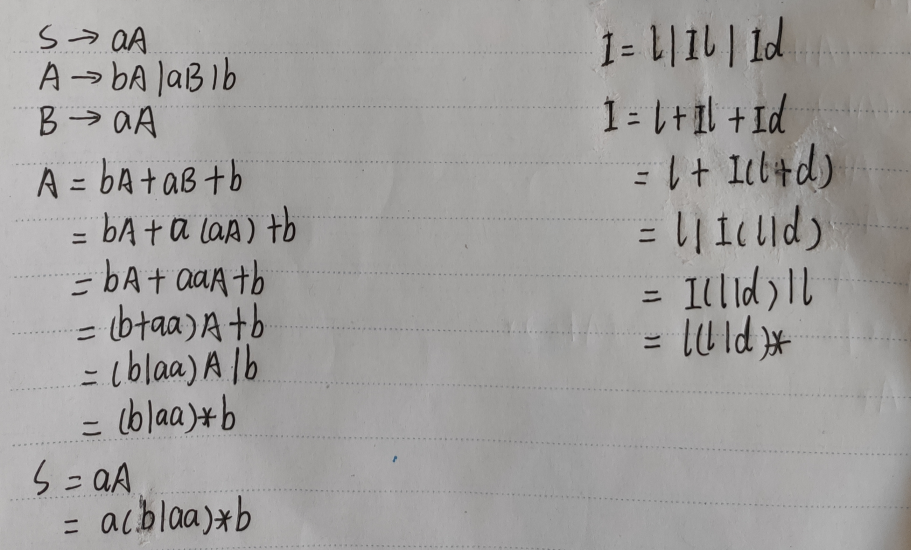 S → aA
A → bA | aB | b
B → aA
A = bA + aB + b
= bA + a (aA) + b
= bA + aaA + b
= (b+aa)A + b
= (b|aa)A | b
= (b|aa)*b
S = aA
= a(b|aa)*b
I = l | Il | Id
I = l + Il + Id
= l + I(l+d)
= l | I(l|d)
= I(l|d) | l
= l(l|d)*